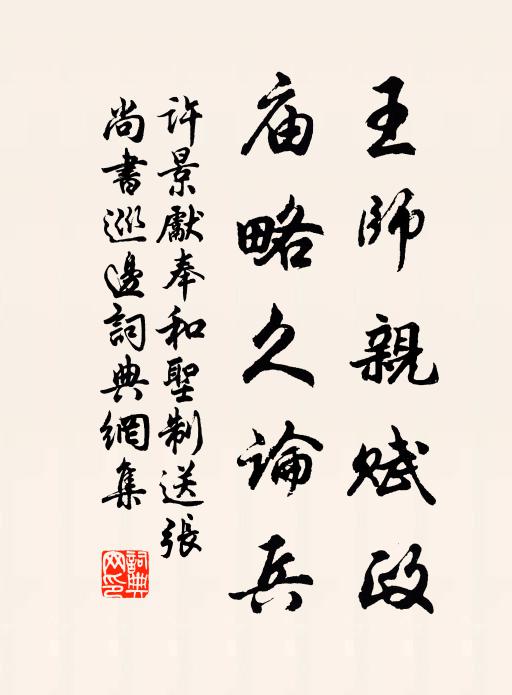 王師親賦政
庙略久論兵
許景獻奉和聖制送張
尚書巡邊詞典網集
詞典
网印